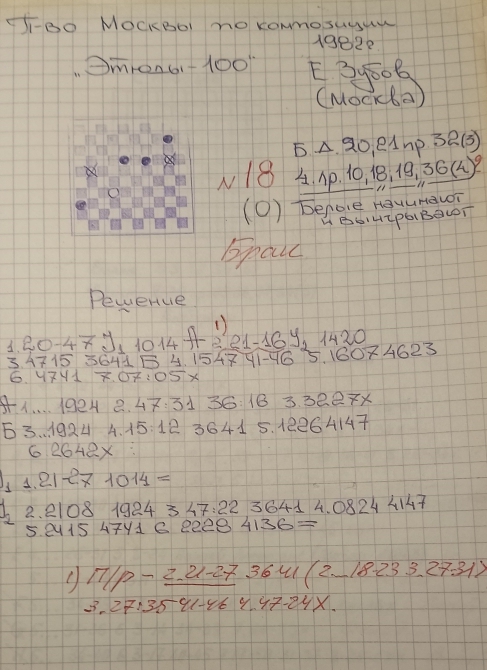 П-во Москвы по композиции
1982г
„Этюды-100"
Е. Зубов
(Москва)
Б. Д. 20,21 пр. 32(3)
Ч. пр. 10,18,19,36(4)?
№ 18
(0)
Белые начинают
и выигрывают
Брак
Решение
1)
1. 20-47 У1 1014 А 2.21-16 У2 1420
3 4715 3641 Б 4.1547 41-46 5.1607 4623
6.4741 7.07:05х
А 1.... 1924 2.47:31 36:16 3.3227х
Б 3...1924 4.15:12 3641 5.1226 4147
6.2642х
У1 1.21-27 1014=
2.2108 1924 3 47:22 3641 4.0824 4147
5.2415 4741 6 2228 4136=
1) П/р – 2.21-27 3641 (2...18-23 3.27-31х
3.27:35 41-46 4.47-24х.